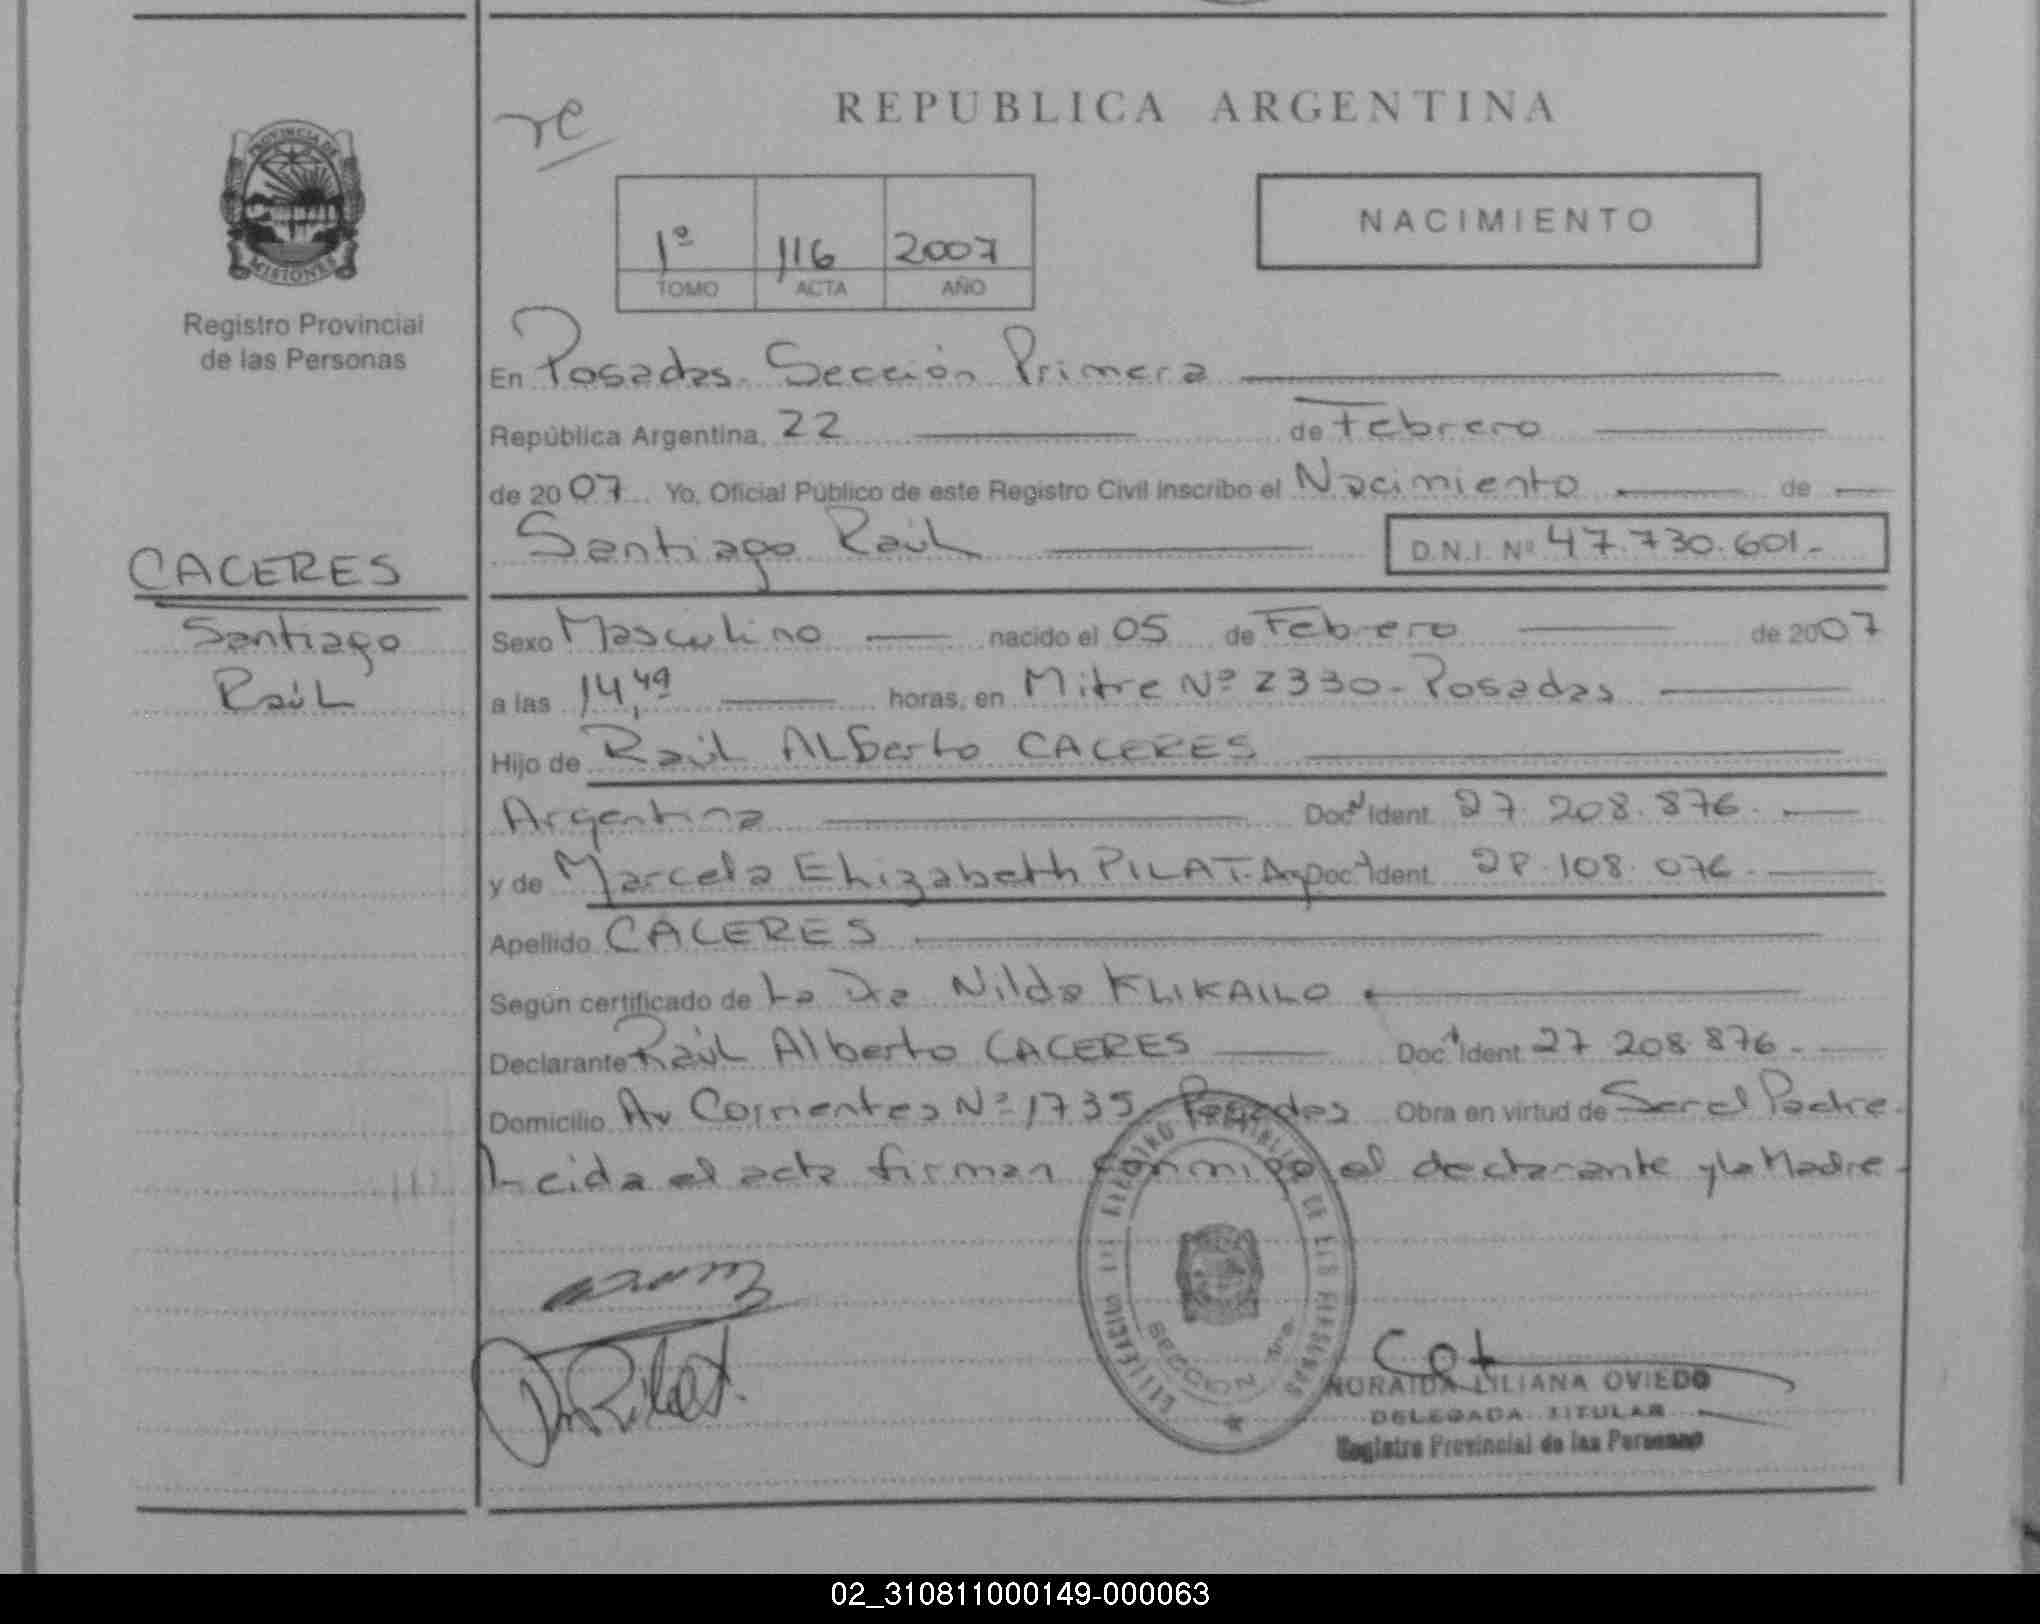 REPUBLICA ARGENTINA
PROVINCIA DE
MISIONES
Registro Provincial
de las Personas
1º 116 2007
TOMO ACTA AÑO
NACIMIENTO
En Posadas. Sección Primera
República Argentina, 22 de Febrero
de 2007 Yo, Oficial Público de este Registro Civil inscribo el Nacimiento de
Santiago Raúl D.N.I. Nº 47.730.601.-
CACERES
Santiago
Raúl
Sexo Masculino nacido el 05 de Febrero de 2007
a las 14,49 horas, en Mitre Nº 2330- Posadas
Hijo de Raúl ALberto CACERES
Argentina Doc Ident. 27.208.876.
y de Marcela Elizabeth PILAT. Arg Doc Ident. 28.108.076.
Apellido CACERES
Según certificado de La Dra Nilda KLIKAILO
Declarante Raúl Alberto CACERES Doc Ident 27 208.876.-
Domicilio Av Corrientes Nº 1735 Posadas Obra en virtud de Ser el Padre.
Leida el acta firman conmigo el declarante y la Madre-
SECCION 1ra.
NORAIDA LILIANA OVIEDO
DELEGADA TITULAR
Registro Provincial de las Personas
02_310811000149-000063